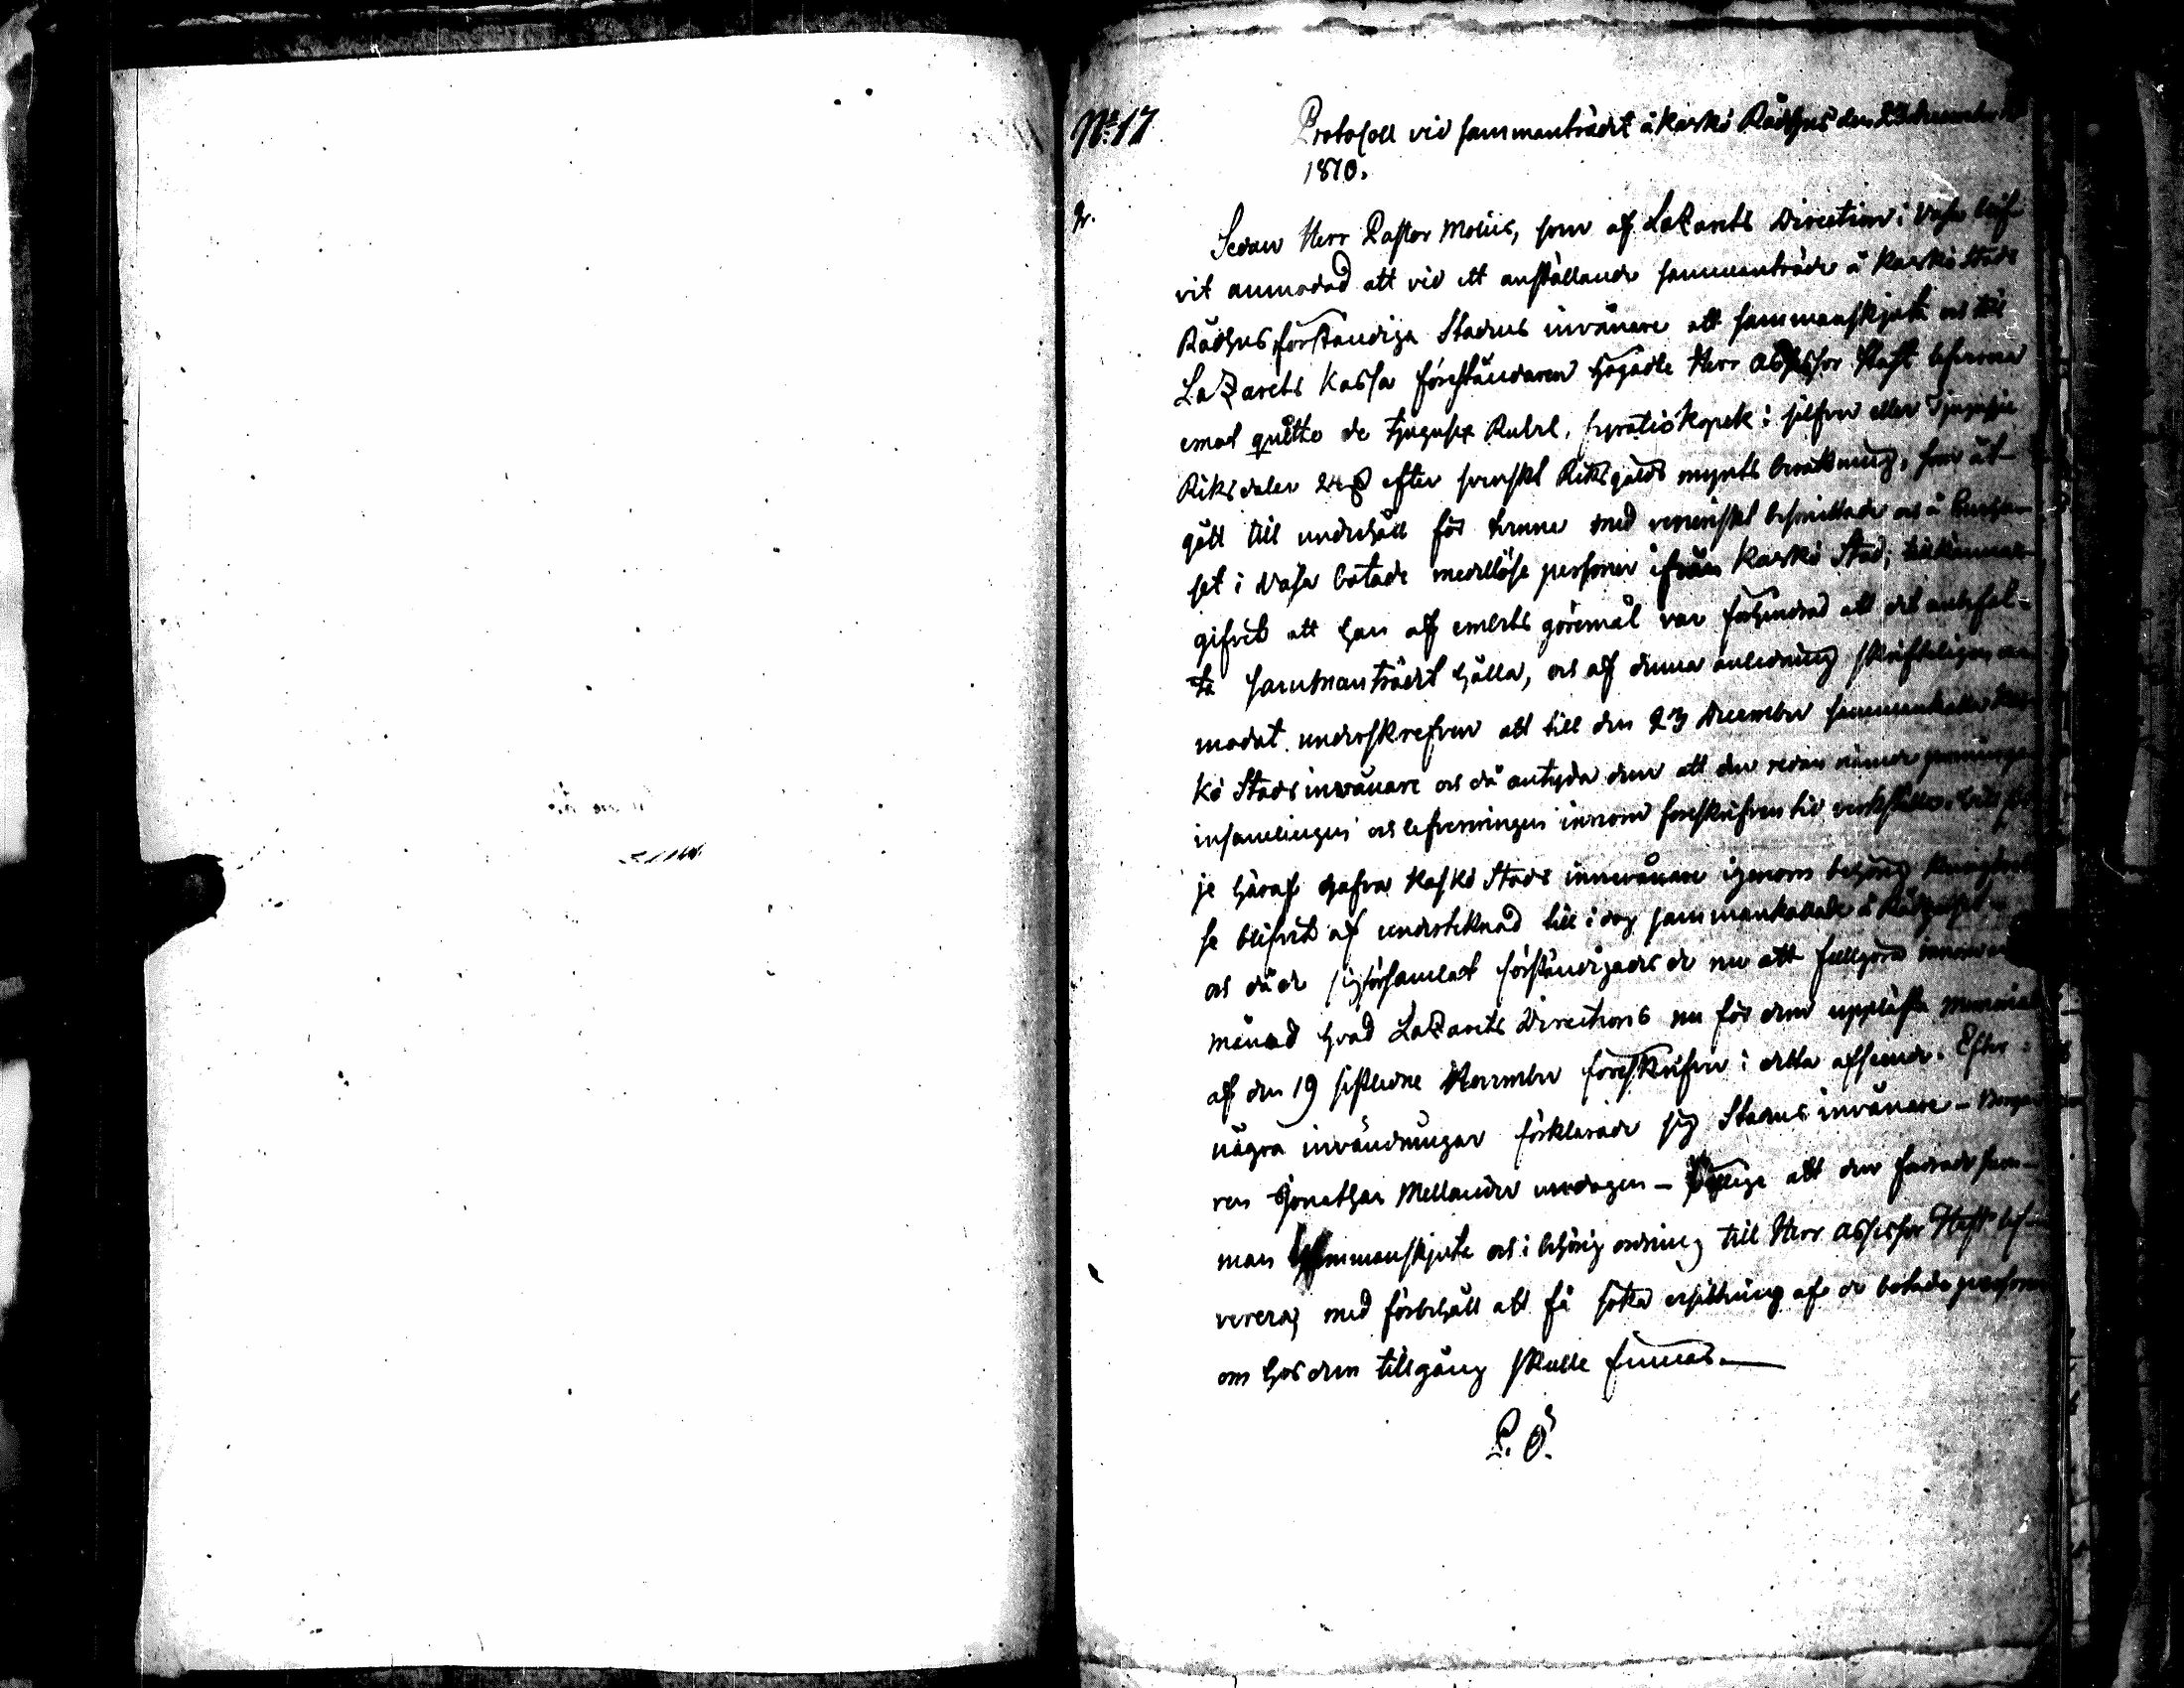 No 17
Protocoll vid sammanträdet å Kaskö Rådhus den 23 december
1810.
Sedan Herr Pastor Moliis, som af LaZarets Direction i Vasa blif-
vit anmodad att vid ett anställande sammanträde å Kaskö Stads
Rådhus förständiga Stadens invånare att sammanskjuta och till
LaZarets Kassa föreståndaren Högädle Herr Assessor Haft leverera
emot qvitto de tjugusex Rubel, fyratio Kopek i silfver eller
Riksdaler 24 ß efter svenskt Riksgälds mynts beräkning, som åt-
gått till underhåll för trenne med veneriskt besmittade och å
set i Vasa botade medellöse personer ifrån Kaskö Stad; tillkänna
gifvit att han af embets göremål var förhindrad att det anbefal-
ta sammanträdet hålla, och af denna anledning skrifteligen an-
modat underskrefven att till den 23 December sammankalla Kas-
kö Stads invånare och då antyda dem att den redan nämde penninge
insamlingen och lefvereringen innom föreskrifven tid verkställa.
je häraf hafva Kaskö Stads innevånare igenom behörig kungörel
se blifvit af underteknad till i dag sammankallade å Rådhuset
och då de sig församlat förständigades de nu att fullgöra innom en
månad hvad LaZarets Directions nu för dem uppläste Memorial
af den 19 sistledne November föreskrifver i detta afseende. Efter
några invändningar förklarade sig Stadens invånare – Borga
ren Jonathan Mellander undagen – villige att den fordrade sum-
man sammanskjuta och i behörig ordning till Herr Assessor Haft lef-
verera, med förbehåll att få söka ersättning af de botade personer
om hos dem tillgång skulle finnas.
P. Ö.